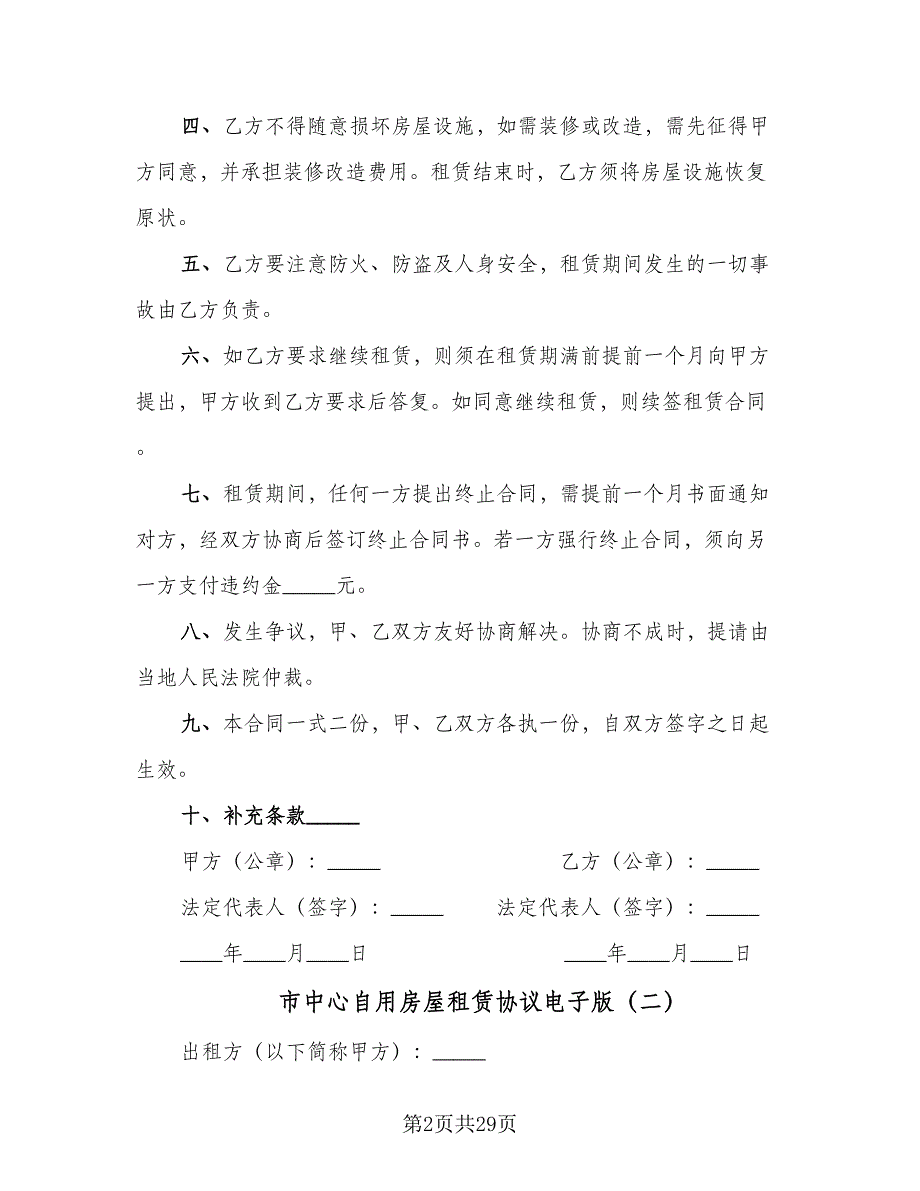 四、乙方不得随意损坏房屋设施，如需装修或改造，需先征得甲
方同意，并承担装修改造费用。租赁结束时，乙方须将房屋设施恢复
原状。
五、乙方要注意防火、防盗及人身安全，租赁期间发生的一切事
故由乙方负责。
六、如乙方要求继续租赁，则须在租赁期满前提前一个月向甲方
提出，甲方收到乙方要求后答复。如同意继续租赁，则续签租赁合同
。
七、租赁期间，任何一方提出终止合同，需提前一个月书面通知
对方，经双方协商后签订终止合同书。若一方强行终止合同，须向另
一方支付违约金_____元。
八、发生争议，甲、乙双方友好协商解决。协商不成时，提请由
当地人民法院仲裁。
九、本合同一式二份，甲、乙双方各执一份，自双方签字之日起
生效。
十、补充条款_____
甲方（公章）：_____ 乙方（公章）：_____
法定代表人（签字）：_____ 法定代表人（签字）：_____
____年____月____日 ____年____月____日
市中心自用房屋租赁协议电子版（二）
出租方（以下简称甲方）：_____
第2页共29页